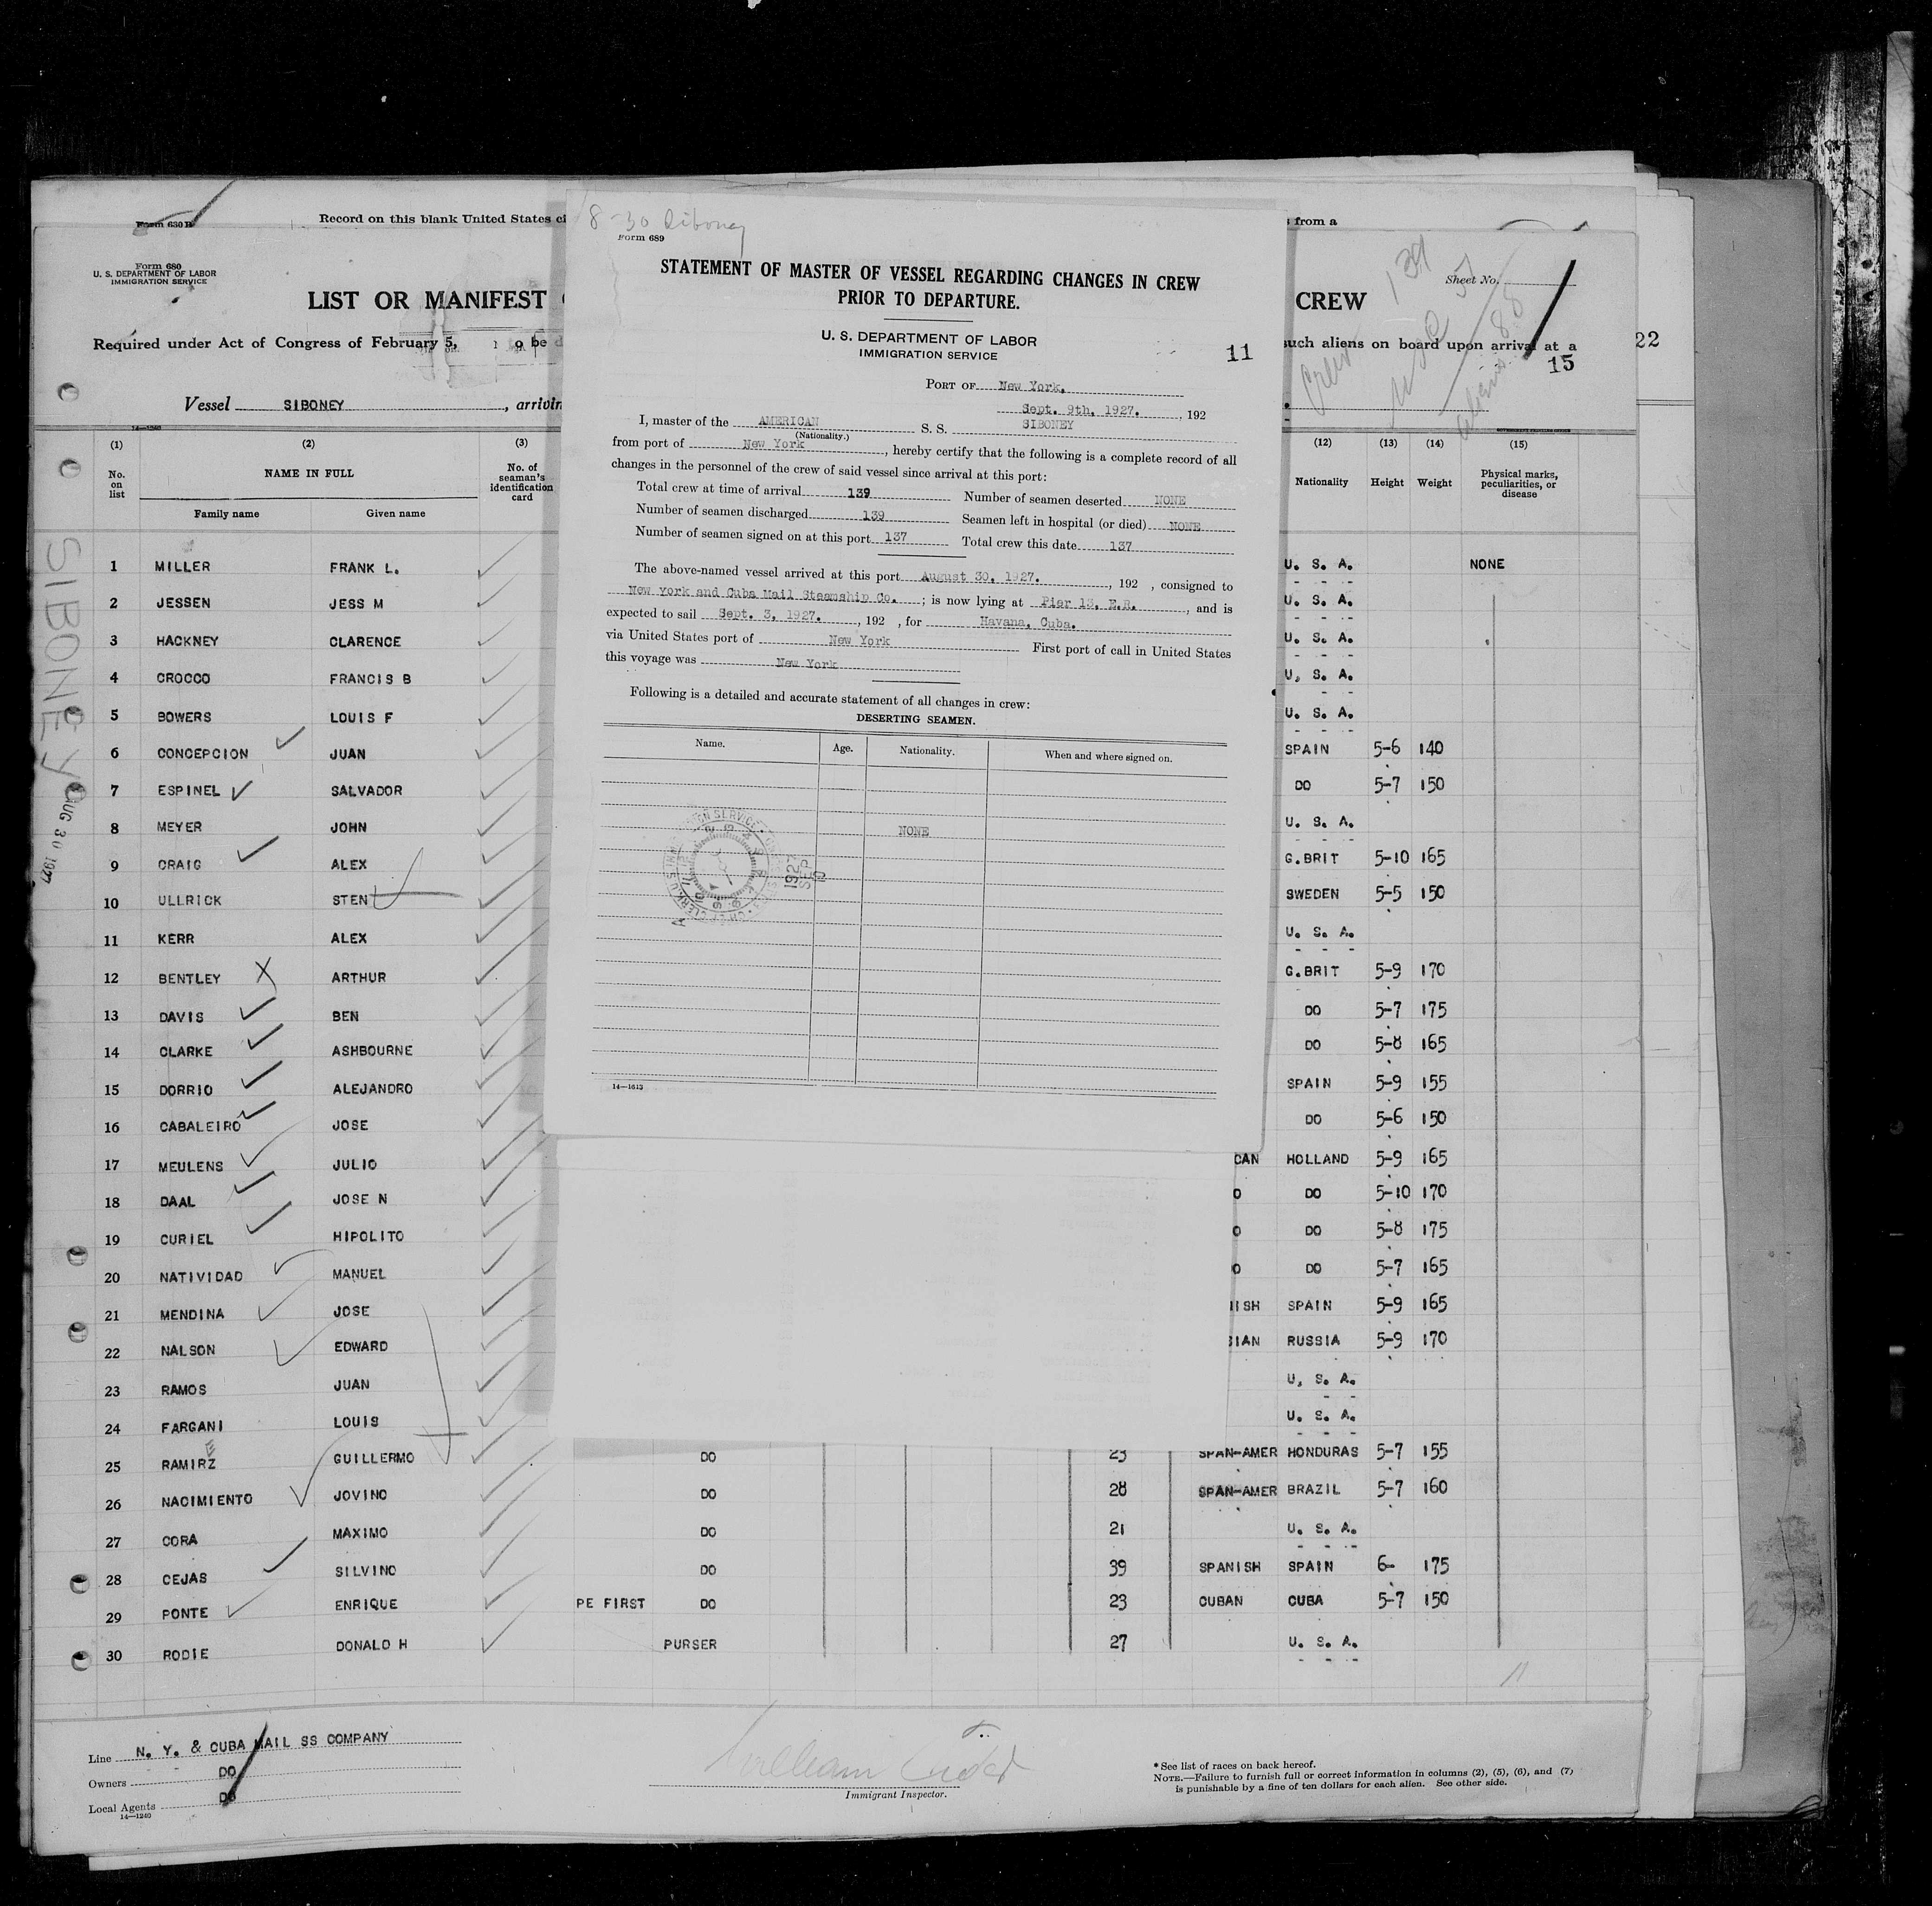 Form 630 B
Record on this blank United States ci
s from a
8-30 Siboney
Form 689
STATEMENT OF MASTER OF VESSEL REGARDING CHANGES IN CREW
PRIOR TO DEPARTURE.
U. S. DEPARTMENT OF LABOR
IMMIGRATION SERVICE
11
PORT OF New York,
Sept. 9th, 1927. , 192
I, master of the AMERICAN S. S. SIBONEY
(Nationality.)
from port of New York , hereby certify that the following is a complete record of all
changes in the personnel of the crew of said vessel since arrival at this port:
Total crew at time of arrival 139 Number of seamen deserted NONE
Number of seamen discharged 139 Seamen left in hospital (or died) NONE
Number of seamen signed on at this port 137 Total crew this date 137
The above-named vessel arrived at this port August 30, 1927. , 192 , consigned to
New York and Cuba Mail Steamship Co. ; is now lying at Pier 13, E.R. , and is
expected to sail Sept. 3, 1927. , 192 , for Havana, Cuba.
via United States port of New York First port of call in United States
this voyage was New York
Following is a detailed and accurate statement of all changes in crew:
DESERTING SEAMEN.
Name. Age. Nationality. When and where signed on.
NONE
1927
SEP
14—1613
Form 680
U. S. DEPARTMENT OF LABOR
IMMIGRATION SERVICE
LIST OR MANIFEST
CREW
Sheet No.
139
Crew
88
Aliens
Required under Act of Congress of February 5,
be d
such aliens on board upon arrival at a
15
22
Vessel SIBONEY , arrivin
14—1240
(1) (2) (3) (12) (13) (14) (15)
No. on list NAME IN FULL No. of seaman's identification card Nationality Height Weight Physical marks, peculiarities, or disease
Family name Given name
SIBONEY
AUG 30 1927
1 MILLER FRANK L. U. S. A. NONE
2 JESSEN JESS M U. S. A.
3 HACKNEY CLARENCE U. S. A.
4 CROCCO FRANCIS B U. S. A.
5 BOWERS LOUIS F U. S. A.
6 CONCEPCION JUAN SPAIN 5-6 140
7 ESPINEL SALVADOR DO 5-7 150
8 MEYER JOHN U. S. A.
9 CRAIG ALEX G.BRIT 5-10 165
10 ULLRICK STEN SWEDEN 5-5 150
11 KERR ALEX U. S. A.
12 BENTLEY X ARTHUR G.BRIT 5-9 170
13 DAVIS BEN DO 5-7 175
14 CLARKE ASHBOURNE DO 5-8 165
15 DORRIO ALEJANDRO SPAIN 5-9 155
16 CABALEIRO JOSE DO 5-6 150
17 MEULENS JULIO CAN HOLLAND 5-9 165
18 DAAL JOSE N O DO 5-10 170
19 CURIEL HIPOLITO O DO 5-8 175
20 NATIVIDAD MANUEL O DO 5-7 165
21 MENDINA JOSE ISH SPAIN 5-9 165
22 NALSON EDWARD SIAN RUSSIA 5-9 170
23 RAMOS JUAN U. S. A.
24 FARGANI LOUIS U. S. A.
E
25 RAMIRZ GUILLERMO DO 23 SPAN-AMER HONDURAS 5-7 155
26 NACIMIENTO JOVINO DO 28 SPAN-AMER BRAZIL 5-7 160
27 CORA MAXIMO DO 21 U. S. A.
28 CEJAS SILVINO DO 39 SPANISH SPAIN 6- 175
29 PONTE ENRIQUE PE FIRST DO 23 CUBAN CUBA 5-7 150
30 RODIE DONALD H PURSER 27 U. S. A.
11
Line N. Y. & CUBA MAIL SS COMPANY
Owners DO
Local Agents DO
14—1240
William
Immigrant Inspector.
* See list of races on back hereof.
NOTE.—Failure to furnish full or correct information in columns (2), (5), (6), and (7)
is punishable by a fine of ten dollars for each alien. See other side.